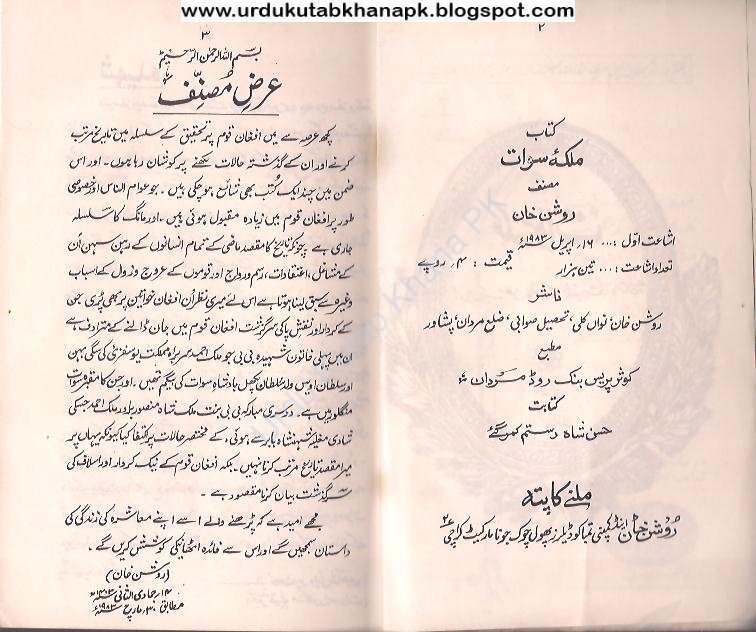 www.urdukutabkhanapk.blogspot.com
۲
کتاب
ملکۂ سوات
مصنف
روشن خان
اشاعت اوّل : ... ۱۶؍ اپریل ۱۹۸۳ء
تعداد اشاعت : ... تین ہزار قیمت : ۴؍ روپے
ناشر
روشن خان، نواں کلی، تحصیل صوابی، ضلع مردان، پشاور
مطبع
کوثر پریس بنک روڈ مردان
کتابت
حسن شاہ رستم کمر گئے
ملنے کا پتہ
روشن خان اینڈ کمپنی تمباکو ڈیلرز پھول چوک جونا مارکیٹ کراچی ۲
۳
بسم اللہ الرحمٰن الرحیم
عرضِ مُصنّف
کچھ عرصہ سے میں افغان قوم پر تحقیق کے سلسلہ میں تاریخ مرتب
کرنے اور ان کے گذشتہ حالات لکھنے پر کوشاں رہا ہوں۔ اور اس
ضمن میں چند ایک کُتب بھی شائع ہو چکی ہیں۔ جو عوام الناس اور خصوصی
طور پر افغان قوم میں زیادہ مقبول ہوئی ہیں۔ اور مانگ کا سلسلہ
جاری ہے چونکہ تاریخ کا مقصد ماضی کے تمام انسانوں کے رہن سہن اُن
کے مشاغل، اعتقادات، رسم و رواج اور قوموں کے عروج و زوال کے اسباب
وغیرہ سے سبق لینا ہوتا ہے اس لئے میری نظر اُن افغان خواتین پر بھی پڑی جن
کے کردار اور نقشِ پا کی سرگزشت افغان قوم میں جان ڈالنے کے مترادف ہے
ان میں پہلی خاتون شہیدہ بی بی جو ملک احمد سربراہ مملکت یوسفزئی کی سگی بہن
اور سلطان اویس ولد سلطان پکھل بادشاہِ سوات کی بیگم تھیں۔ اور جن کا مقبرہ سوات
منگلور میں ہے۔ دوسری مبارکہ بی بی بنت ملک شاہ منصور برادر ملک احمد جسکی
شادی مغلیہ شہنشاہ بابر سے ہوئی، کے مختصر حالات پر اکتفا کیا کیونکہ یہاں پر
میرا مقصد تاریخ مرتب کرنا نہیں۔ بلکہ افغان قوم کے نیک کردار اور اسلاف کی
سرگزشت بیان کرنا مقصود ہے۔
مجھے امید ہے کہ پڑھنے والے اسے اپنے معاشرہ کی زندگی کی
داستان سمجھیں گے اور اس سے فائدہ اٹھانیکی کوشش کریں گے۔
(روشن خان)
۱۴؍ جمادی الثانی ۱۴۰۳ھ
مطابق ۳۰؍ مارچ ۱۹۸۳ء
Urdu Kutab Khana PK